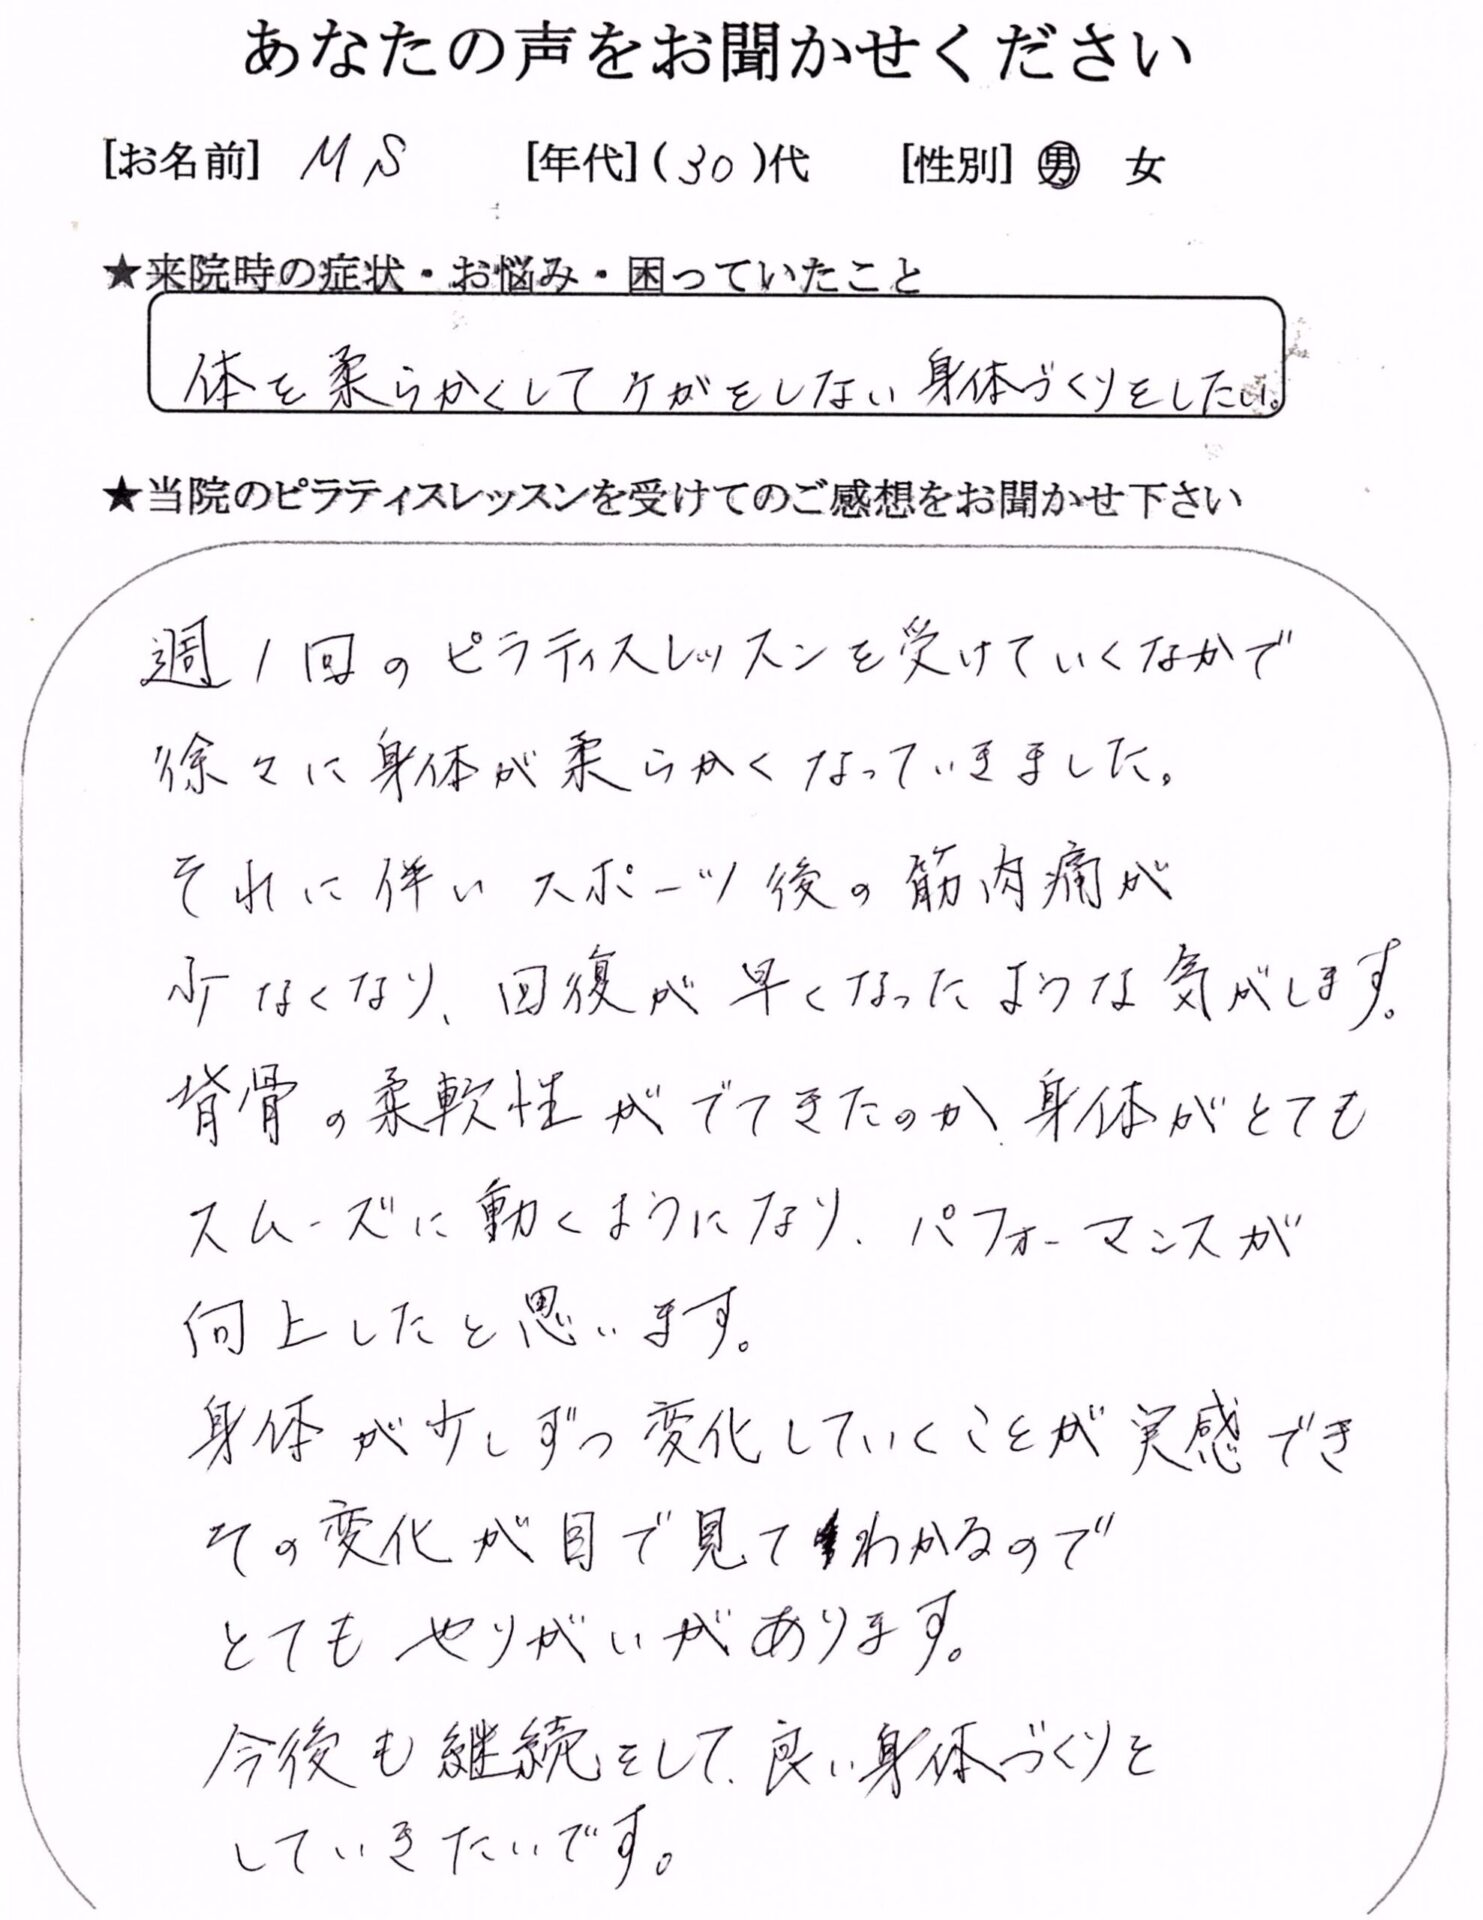 あなたの声をお聞かせください
[お名前] MS [年代](30)代 [性別] 男 女
★来院時の症状・お悩み・困っていたこと
体を柔らかくしてケガをしない身体づくりをしたい。
★当院のピラティスレッスンを受けてのご感想をお聞かせ下さい
週1回のピラティスレッスンを受けていくなかで
徐々に身体が柔らかくなっていきました。
それに伴いスポーツ後の筋肉痛が
少なくなり、回復が早くなったような気がします。
背骨の柔軟性がでてきたのか、身体がとても
スムーズに動くようになり、パフォーマンスが
向上したと思います。
身体が少しずつ変化していくことが実感でき
その変化が目で見てわかるので
とてもやりがいがあります。
今後も継続をして、良い身体づくりを
していきたいです。